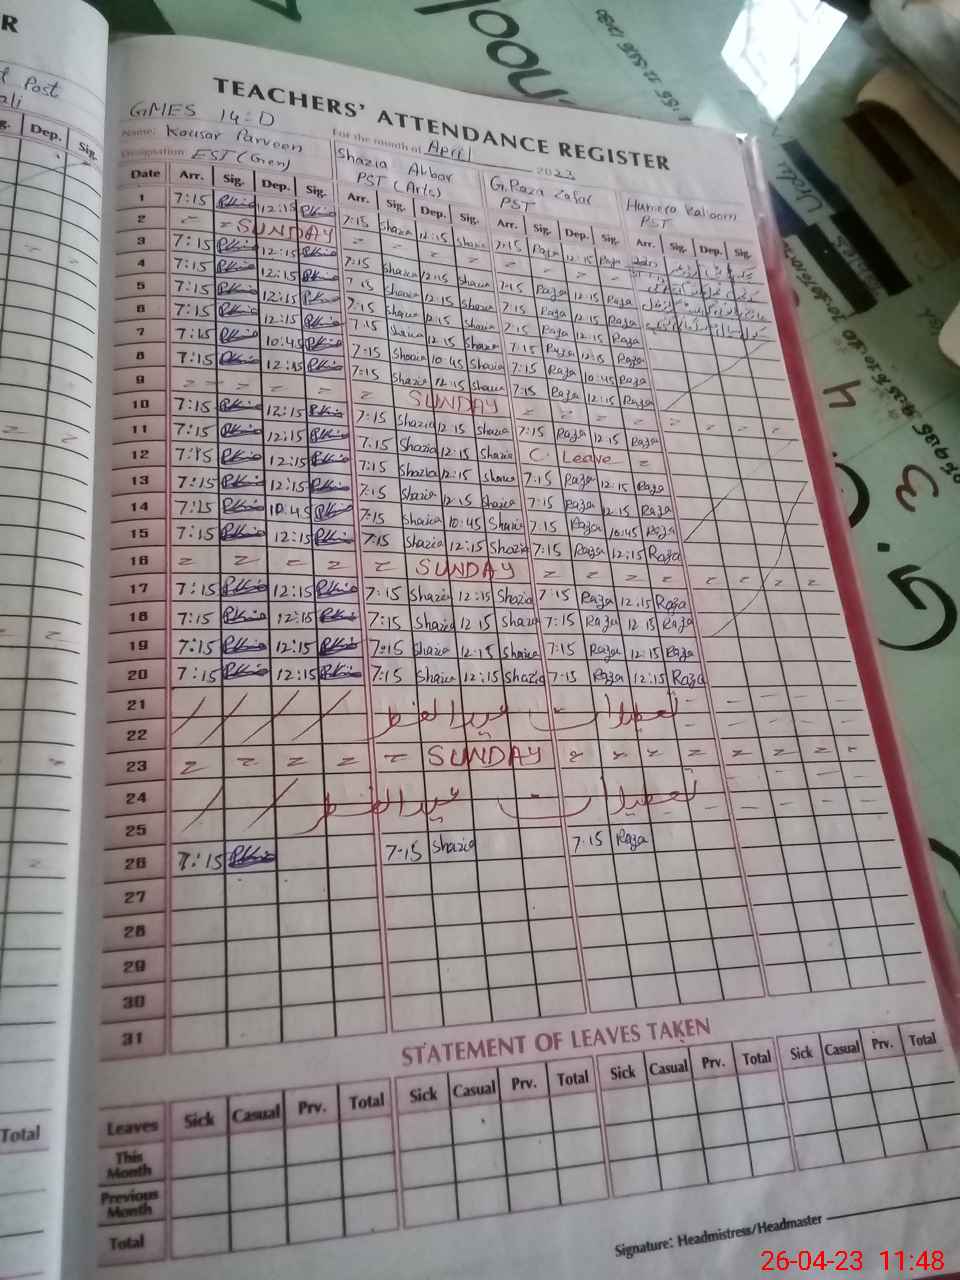 R
TEACHERS' ATTENDANCE REGISTER
GMES 14-D
Name: Kousar Parveen For the month of April 2023
Designation: EST (Gen)
Shazia Akbar
PST (Arts)
G. Raza Zafar
PST
PST
Post
ali
Dep. Sig.
Date Arr. Sig. Dep. Sig. Arr. Sig. Dep. Sig. Arr. Sig. Dep. Sig. Arr. Sig. Dep. Sig.
1 7:15 12:15 7:15 Shazia 12:15 Shazia 7:15 Raja 12:15 Raja
2 SUNDAY
3 7:15 12:15 7:15 Shazia 12:15 Shazia 7:15 Raja 12:15 Raja
4 7:15 12:15 7:15 Shazia 12:15 Shazia 7:15 Raja 12:15 Raja
5 7:15 12:15 7:15 Shazia 12:15 Shazia 7:15 Raja 12:15 Raja
6 7:15 12:15 7:15 Shazia 12:15 Shazia 7:15 Raja 12:15 Raja
7 7:15 10:45 7:15 Shazia 10:45 Shazia 7:15 Raja 10:45 Raja
8 7:15 12:15 7:15 Shazia 12:15 Shazia 7:15 Raja 12:15 Raja
9 SUNDAY
10 7:15 12:15 7:15 Shazia 12:15 Shazia 7:15 Raja 12:15 Raja
11 7:15 12:15 7:15 Shazia 12:15 Shazia C. Leave
12 7:15 12:15 7:15 Shazia 12:15 Shazia 7:15 Raja 12:15 Raja
13 7:15 12:15 7:15 Shazia 12:15 Shazia 7:15 Raja 12:15 Raja
14 7:15 10:45 7:15 Shazia 10:45 Shazia 7:15 Raja 10:45 Raja
15 7:15 12:15 7:15 Shazia 12:15 Shazia 7:15 Raja 12:15 Raja
16 SUNDAY
17 7:15 12:15 7:15 Shazia 12:15 Shazia 7:15 Raja 12:15 Raja
18 7:15 12:15 7:15 Shazia 12:15 Shazia 7:15 Raja 12:15 Raja
19 7:15 12:15 7:15 Shazia 12:15 Shazia 7:15 Raja 12:15 Raja
20 7:15 12:15 7:15 Shazia 12:15 Shazia 7:15 Raja 12:15 Raja
21 تعطیلات عیدالفطر
22
23 SUNDAY
24 تعطیلات عیدالفطر
25
26 7:15 7:15 Shazia 7:15 Raja
27
28
29
30
31
STATEMENT OF LEAVES TAKEN
Leaves Sick Casual Prv. Total Sick Casual Prv. Total Sick Casual Prv. Total Sick Casual Prv. Total
This Month
Previous Month
Total
Total
Signature: Headmistress/Headmaster
26-04-23 11:48